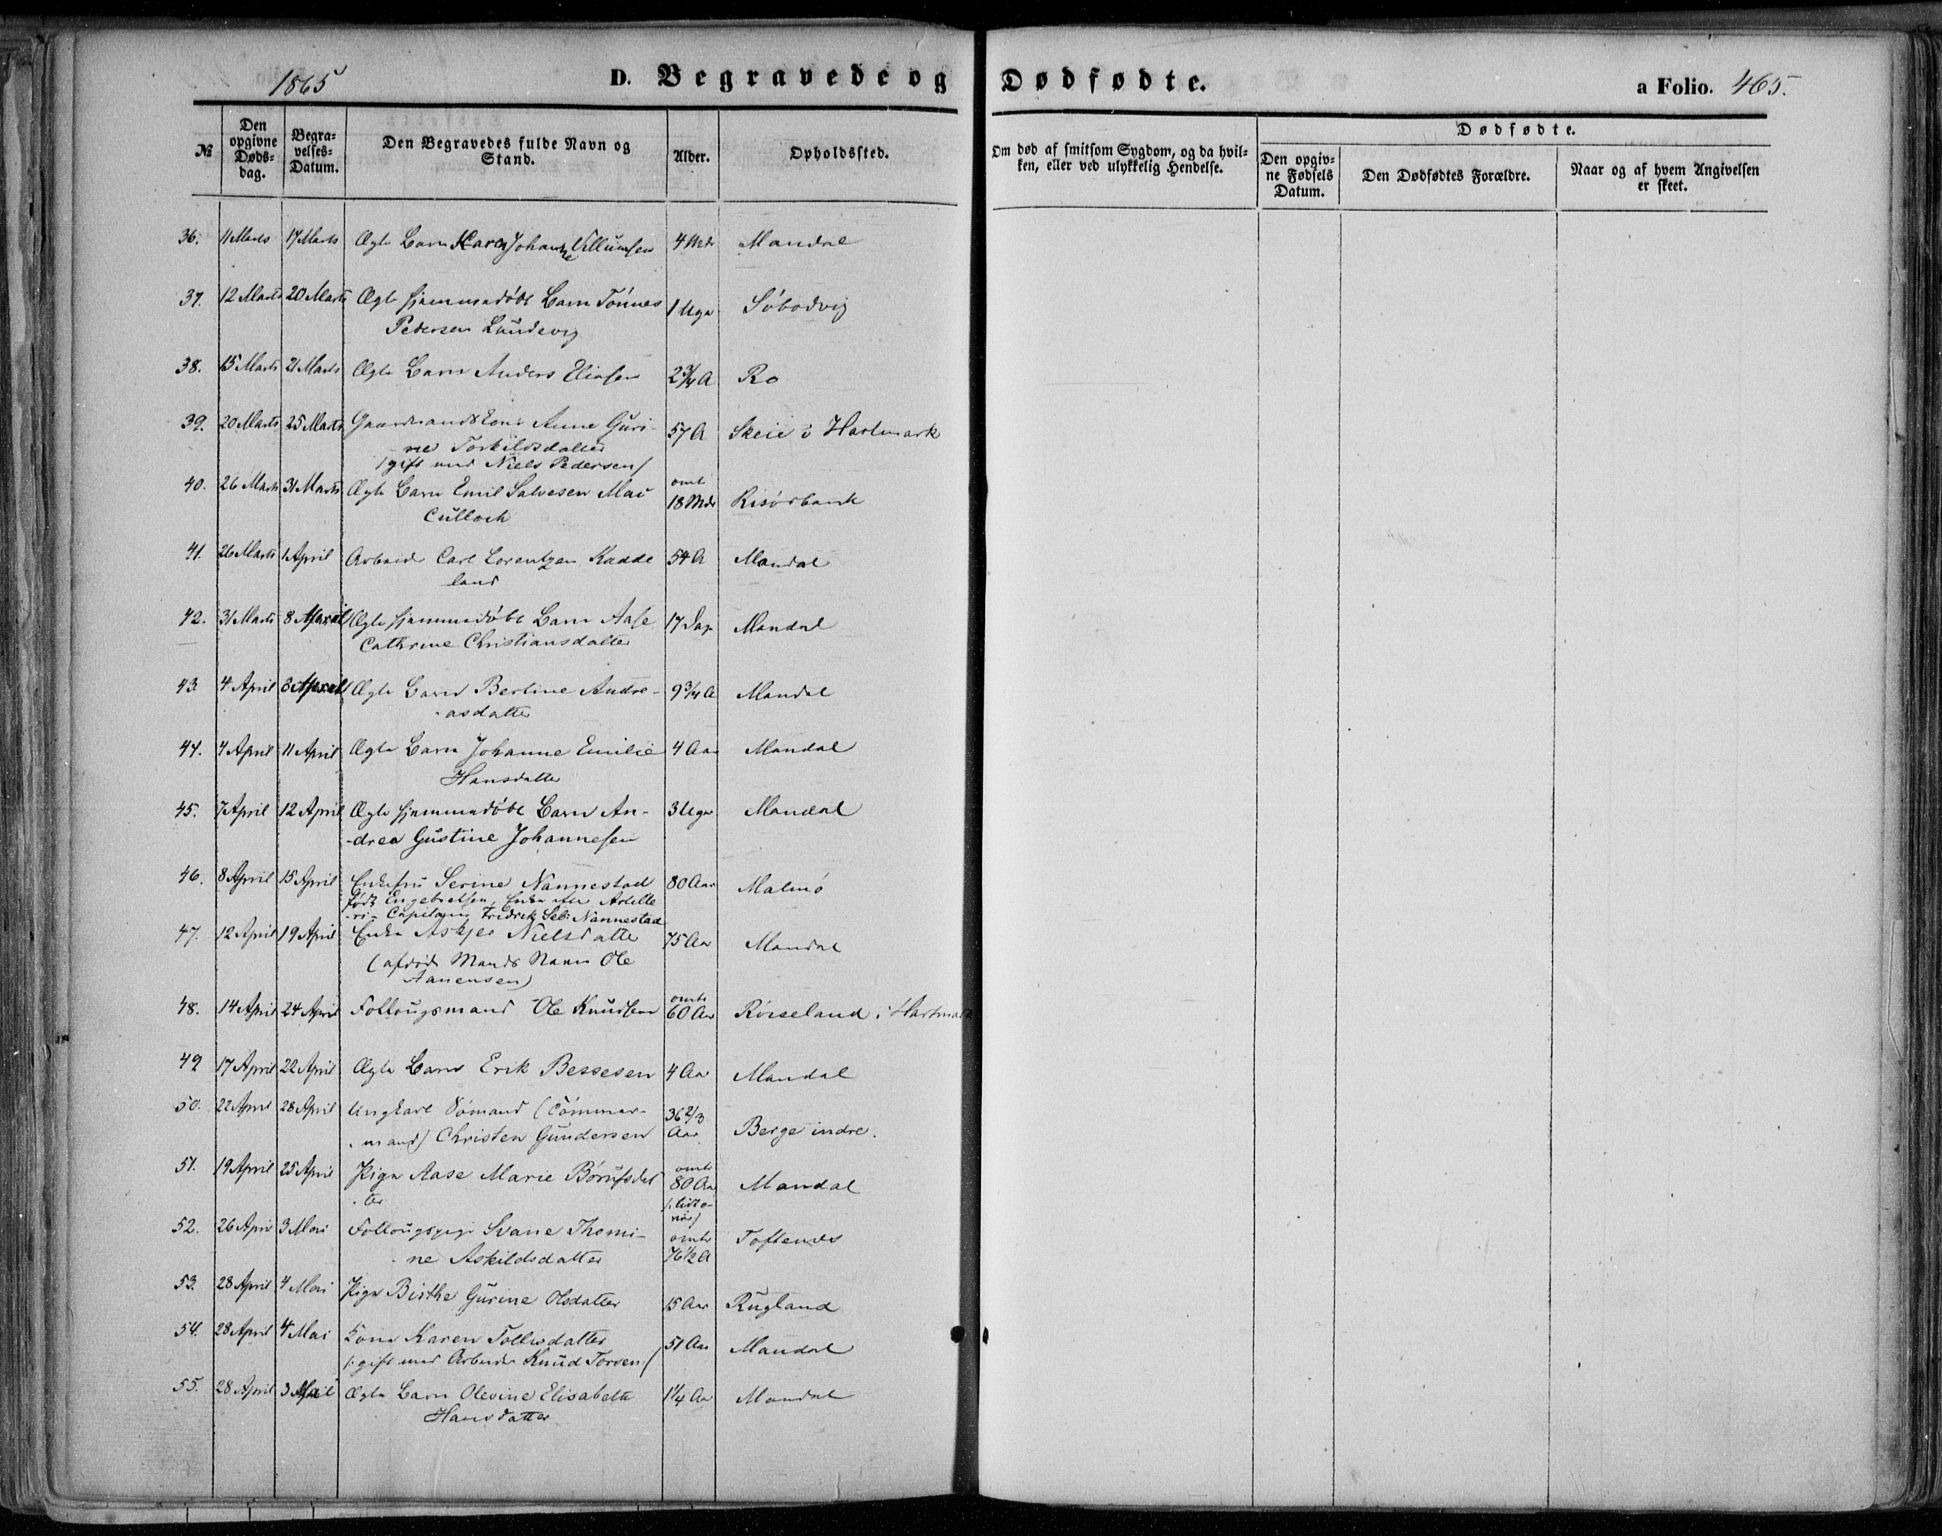 1865 D. Begravede og Dødfødte. a Folio. 465.
№ Den opgivne Døds-dag. Begra-velses-Datum. Den Begravedes fulde Navn og Stand. Alder. Opholdssted. Om død af smitsom Sygdom, og da hvil-ken, eller ved ulykkelig Hendelse. Dødfødte. Den opgiv-ne Fødsels Datum. Den Dødfødtes Forældre. Naar og af hvem Angivelsen er skeet.
36. 11 Marts 17 Marts Ægte Barn Karen Johanne Villumsen 4 Mdr Mandal
37. 12 Marts 20 Marts Ægte hjemmedøbt Barn Tönnes 1 Uge
Pedersen Landevig
38. 15 Marts 21 Marts Ægte Barn Anders Eliasen 2 3/4 A Ro
39. 20 Marts 25 Marts Gaardmandskone Anne Guri- 57 A Skeie i Hartmark
ne Torkildsdatter
/gift med Niels Pedersen/
40. 26 Marts 31 Marts Ægte Barn Emil Salvesen Mac omt 18 Mdr Risørbank
Culloch
41. 26 Marts 1 April Arbeider Carl Lorentzen Kadde 54 A Mandal
land
42. 31 Marts 8 April Ægte hjemmedøbt Barn Aase 17 Dage Mandal
Cathrine Christiansdatter
43. 4 April 8 April Ægte Barn Bertine Andre- 9 3/4 A Mandal
-asdatter
44. 7 April 11 April Ægte Barn Johanne Emilie 4 Aar Mandal
Hansdatter
45. 7 April 12 April Ægte hjemmedøbt Barn An- 3 Uger Mandal
-drea Gustine Johannesen
46. 8 April 15 April Enkefru Serine Nannestad 80 Aar Malmø
født Engebretsen, Enke efter Artille
-ri- Capitain Fredrik Seb: Nannestad
47. 12 April 19 April Enke Askjer Nielsdatter 75 Aar Mandal
(afdød Mands Navn Ole
Aanensen)
48. 14 April 24 April Follougsmand Ole Knudsen omtr 60 Aar Röiseland i Hartmark
49 17 April 22 April Ægte Barn Erik Bessesen 4 Aar Mandal
50. 22 April 28 April Ungkarl Sömand (Tömmer- 36 2/3 Aar Berge indre.
-mand) Christen Gundersen
51. 19 April 25 April Pige Aase Marie Börufsdat omtr 80 Aar Mandal
-ter
52. 26 April 3 Mai Follougspige Svane Thomi- omtr 76 1/2 A Toftenes
-ne Askildsdatter
53. 28 April 4 Mai Pige Birthe Gurine Olsdatter 15 Aar Rugland
54. 28 April 4 Mai Kone Karen Tollesdatter 51 Aar Mandal
/: gift med Arbeider Knud Torsen:/
55. 28 April 3 Mai Ægte Barn Olevine Elisabeth 1 1/4 Aar Mandal
Hansdatter